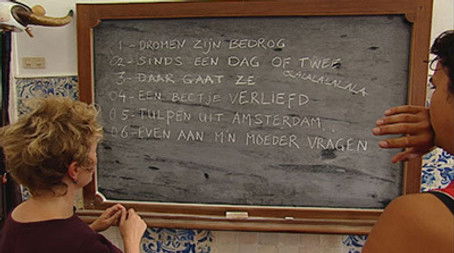 1 - DROMEN ZIJN BEDROG
02 - SINDS EEN DAG OF TWEE
OLALALALALALA
3 - DAAR GAAT ZE
04 - EEN BEETJE VERLIEFD
05 - TULPEN UIT AMSTERDAM...
06 - EVEN AAN M'N MOEDER VRAGEN